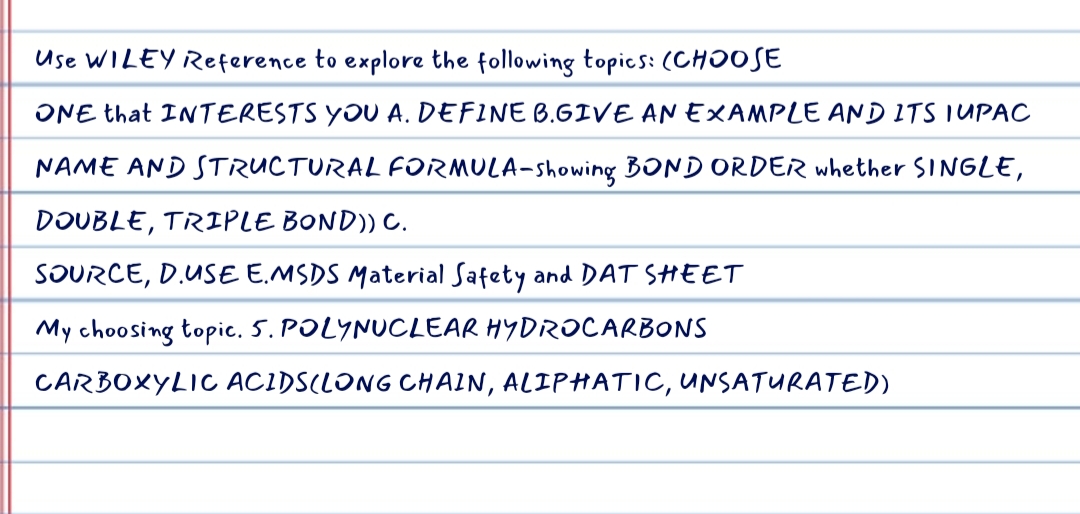 Use WILEY Reference to explore the following topics: (CHOOSE
ONE that INTERESTS YOU A. DEFINE B.GIVE AN EXAMPLE AND ITS IUPAC
NAME AND STRUCTURAL FORMULA-showing BOND ORDER whether SINGLE,
DOUBLE, TRIPLE BOND)) C.
SOURCE, D.USE E.MSDS Material Safety and DAT SHEET
My choosing topic. 5. POLYNUCLEAR HYDROCARBONS
CARBOXYLIC ACIDS(LONG CHAIN, ALIPHATIC, UNSATURATED)